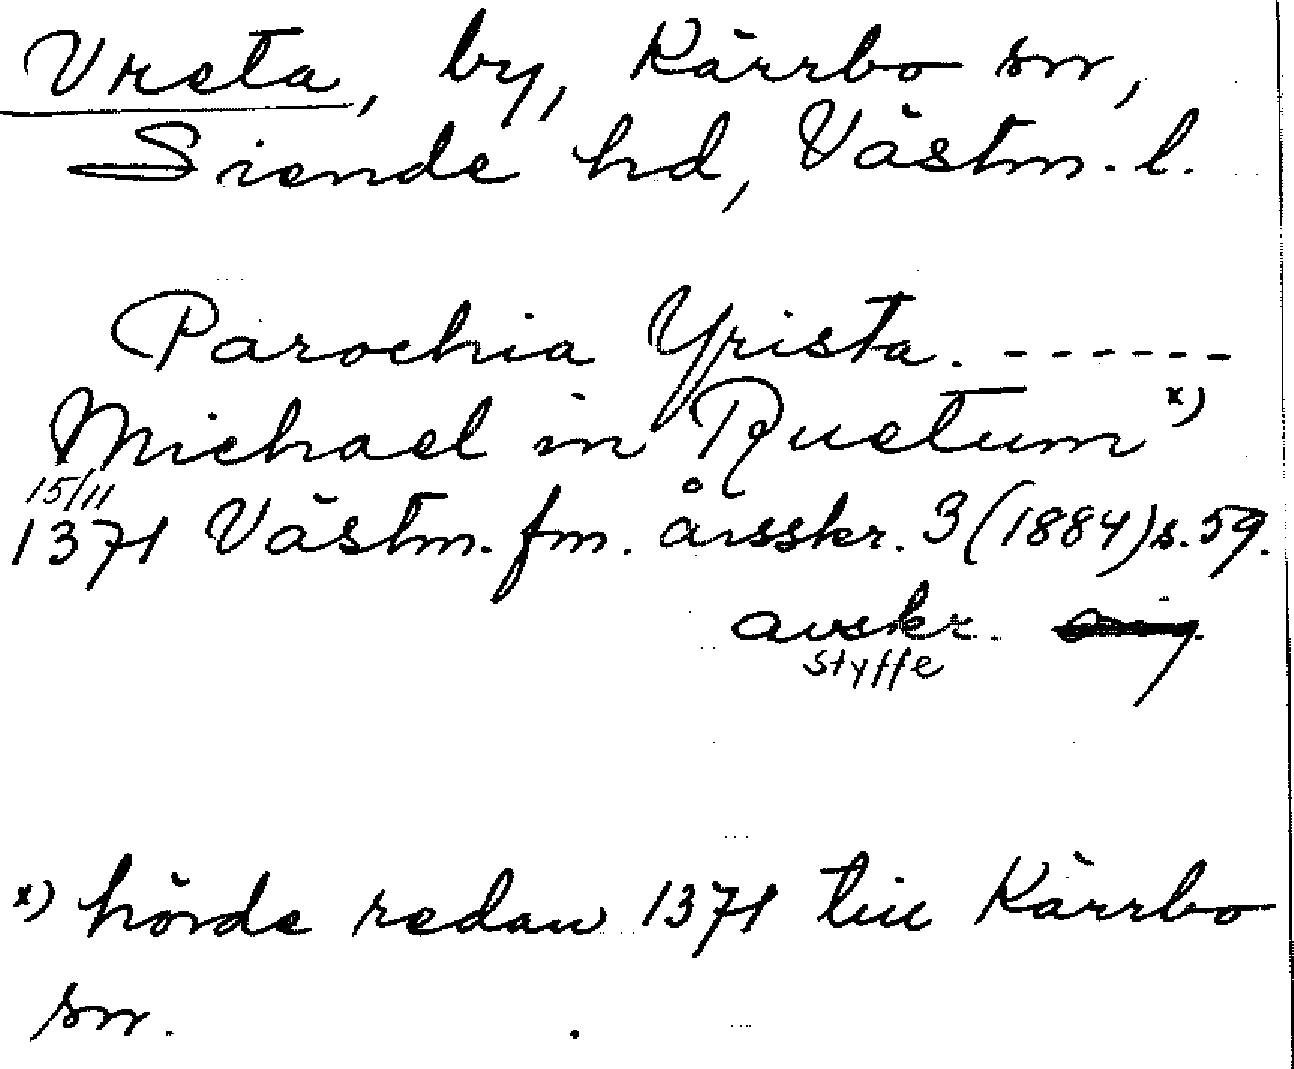 Vreta, by, Kärrbo sn,
Siende hd, Västm. l.
Parochia Yrista. ------
Michael in Ruetum x)
15/11
1371 Västm. fm. årsskr. 3 (1884) s. 59.
avskr.
Styffe
x) hörde redan 1371 till Kärrbo
sn.